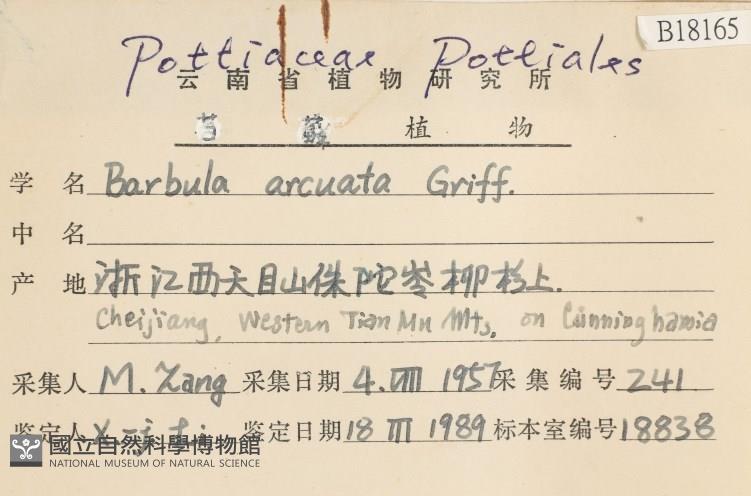 B18165
Pottiaceae Pottiales
云南省植物研究所
苔藓植物
学名 Barbula arcuata Griff.
中名
产地 浙江西天目山侏陀岺柳杉上.
Cheijiang, Western Tian Mu Mts, on Cunninghamia
采集人 M. Zang 采集日期 4. VIII 1957 采集编号 241
鉴定人 鉴定日期 18 III 1989 标本室编号 18838
國立自然科學博物館
NATIONAL MUSEUM OF NATURAL SCIENCE